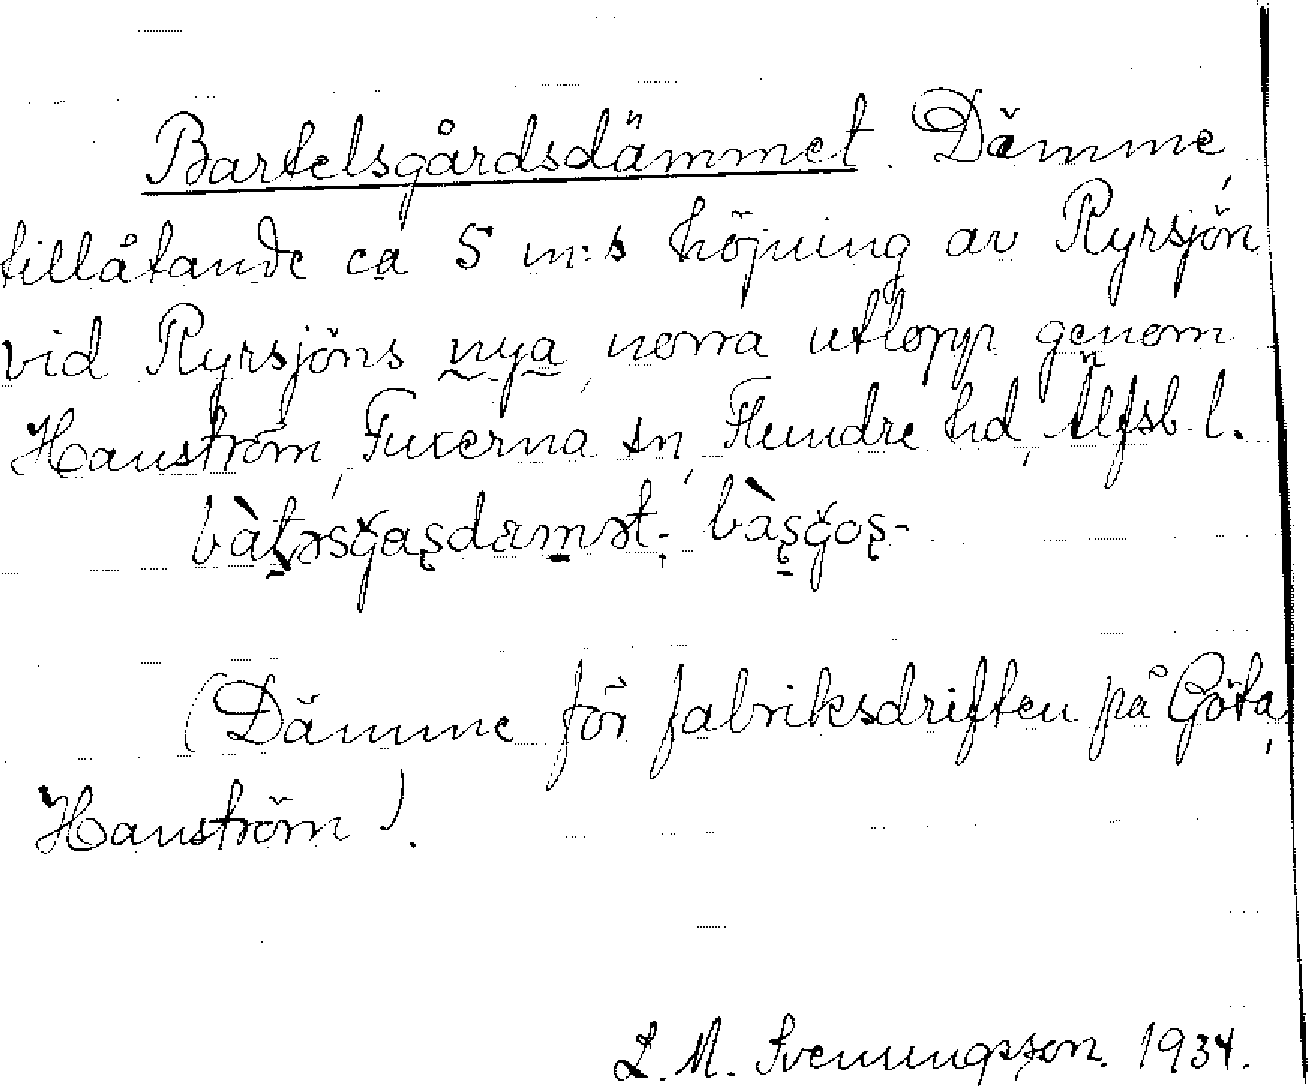 Bartelsgårdsdämmet. Dämme,
tillåtande ca 5 m:s höjning av Ryrsjön
vid Ryrsjöns nya, norra utlopp genom
Hanström, Fuxerna sn, Flundre hd, Älfsb. l.
(Dämme för fabriksdriften på Göta,
Hanström).
L. M. Svenungsson. 1934.